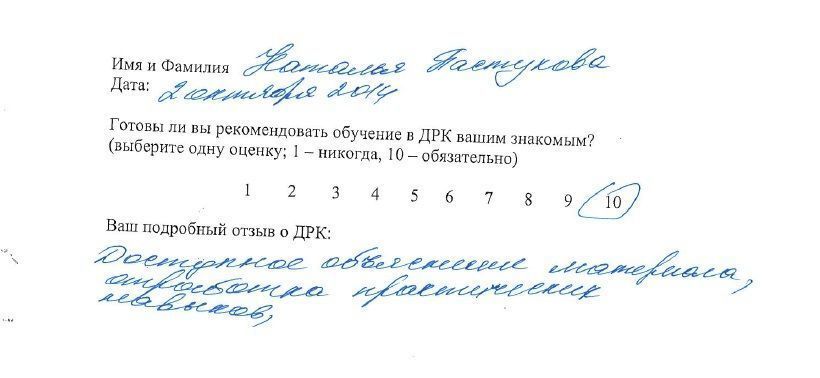 Имя и Фамилия Наталья Пастухова
Дата: 2 октября 2014
Готовы ли вы рекомендовать обучение в ДРК вашим знакомым?
(выберите одну оценку; 1 – никогда, 10 – обязательно)
1 2 3 4 5 6 7 8 9 10
Ваш подробный отзыв о ДРК:
Доступное объяснение материала,
отработка практических
навыков,